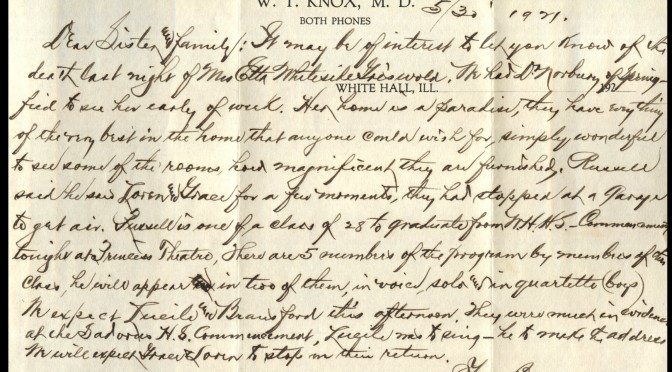 W. T. KNOX, M. D.
BOTH PHONES
5/30 1921.
Dear Sister & family/: It may be of interest to let you know of the
death last night of Mrs Etta Whiteside Griswold. We had Dr Norbury of Spring-
WHITE HALL, ILL. 192
field to see her early of week. Her home is a paradise, they have everything
of the very best in the home that anyone could wish for, simply wonderful
to see some of the rooms, how magnificent they are furnished. Russell
said he saw Loren & Grace for a few moments, they had stopped at a Garage
to get air. Russell is one of a class of 28 to graduate from W.H.H.S. - Commencement
tonight at Princess Theatre, There are 5 numbers of the program by members of the
class, he will appear in two of them, in voice solo & in quartette (boys)
We expect Lucile & Bransford this afternoon. They were much in evidence
at the H.S. Commencement, Lucile was to sing - he to make the address
We will expect Grace & Loren to stop on their return.